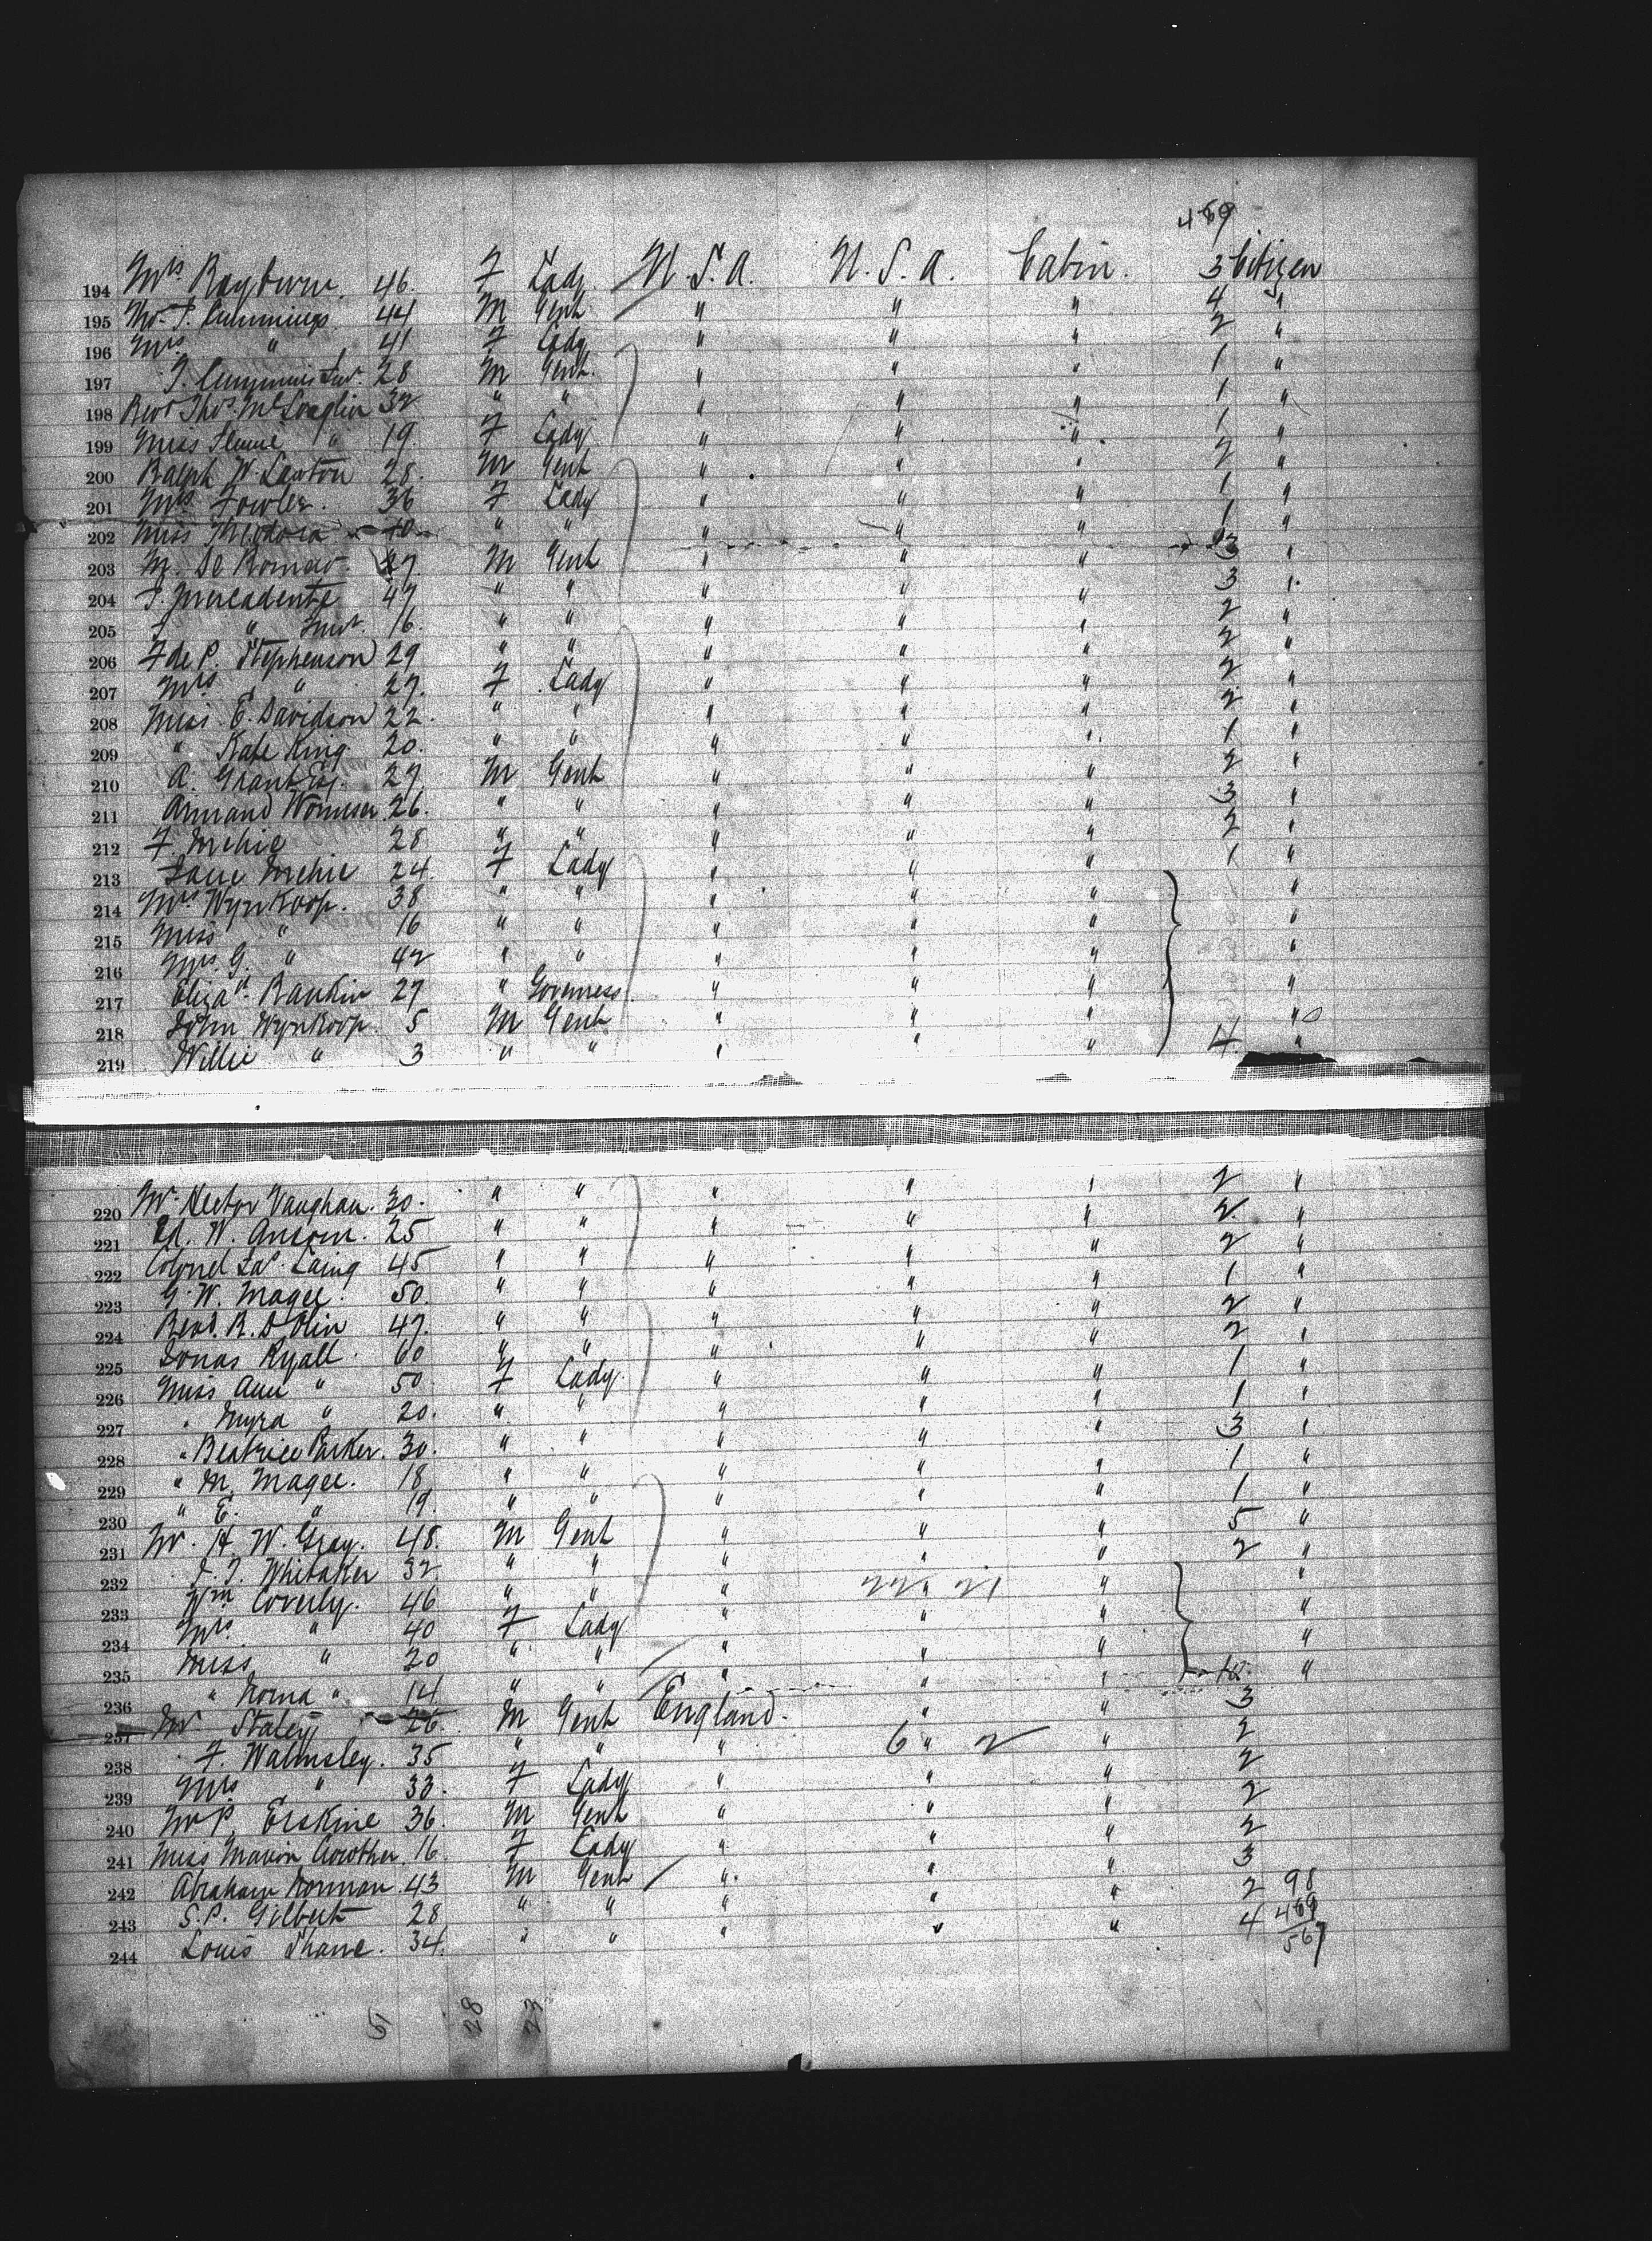 489
194 Mrs Rayburn. 46. F Lady U.S.A. U.S.A. Cabin. 3 Citizen
195 Mr. T. Cummings 44 M Gent " " " 4 "
196 Mrs " 41 F Lady " " " 2 "
197 T. Cummins Junr. 28 M Gent. " " " 1 "
198 Revd Thos. McLoaglin 32 " " " " " 1 "
199 Miss " 19 F Lady " " " 1 "
200 Ralph W. Lawton 28. M Gent " " " 2 "
201 Mrs Fowler. 36 F Lady " " " 1 "
202 Miss Theodora 10 " " " " " 1 "
203 M. De Romeo. 27. M Gent " " " 3 "
204 J. Mercadente 47 " " " " " 3 "
205 J " Junr. 16. " " " " " 2
206 F de P. Stephenson 29 " " " " " 2 "
207 Mrs " 27. F Lady " " " 2 "
208 Miss E. Davidson 22. " " " " " 2 "
209 " Kate King 20. " " " " " 1 "
210 A. Grant Esq. 27 M Gent " " " 2 "
211 Armand Wormser 26. " " " " " 3 "
212 F. 28. " " " " " 2 "
213 24. F Lady " " " 1 "
214 Mrs Wynkoop. 38 " " " " " "
215 Miss " 16 " " " " " "
216 Mrs. G. " 42 " " " " " "
217 Eliza. Rankin 27 " Governess. " " " "
218 John Wynkoop. 5 M Gent " " " "
219 Willie " 3 " " " " " 4 "
220 Mr. Hector Vaughan. 30. " " " " " 2 "
221 Ed. W. Ansom. 25 " " " " " 2 "
222 Colonel Laing 45 " " " " " 2 "
223 G. W. Magee. 50. " " " " " 1 "
224 Revd. R. D Olin 47. " " " " " 2 "
225 Jonas Ryall. 60 " " " " " 2 "
226 Miss Ann " 50 F Lady " " " 1 "
227 " Myra " 20. " " " " " 1 "
228 " Beatrice Parker. 30. " " " " " 3 "
229 " M. Magee. 18 " " " " " 1 "
230 " E. " 19. " " " " " 1 "
231 Mr. H. W. Gray. 48. M Gent " " " 5 "
232 J. T. Whitaker 32 " " " " " 2 "
233 Wm Coverly. 46 " " " 22 " 21 " "
234 Mrs " 40 F Lady " " " "
235 Miss " 20 " " " " " "
236 " Norma " 14 " " " " "
237 Mr Staley 26 M Gent England. " " 3
238 F. Walmsley. 35 " " " 6 " 2 " 2
239 Mrs " 33. F Lady " " " 2
240 Mr P. Erskine 36 M Gent " " " 2
241 Miss Marion Crowther 16 F Lady " " " 2
242 Abraham Norman. 43 M Gent " " " 3
243 S.P. Gilbert 28 " " " " " 2 98
244 Louis Thane. 34. " " " " " 4 469
567
5 28 23